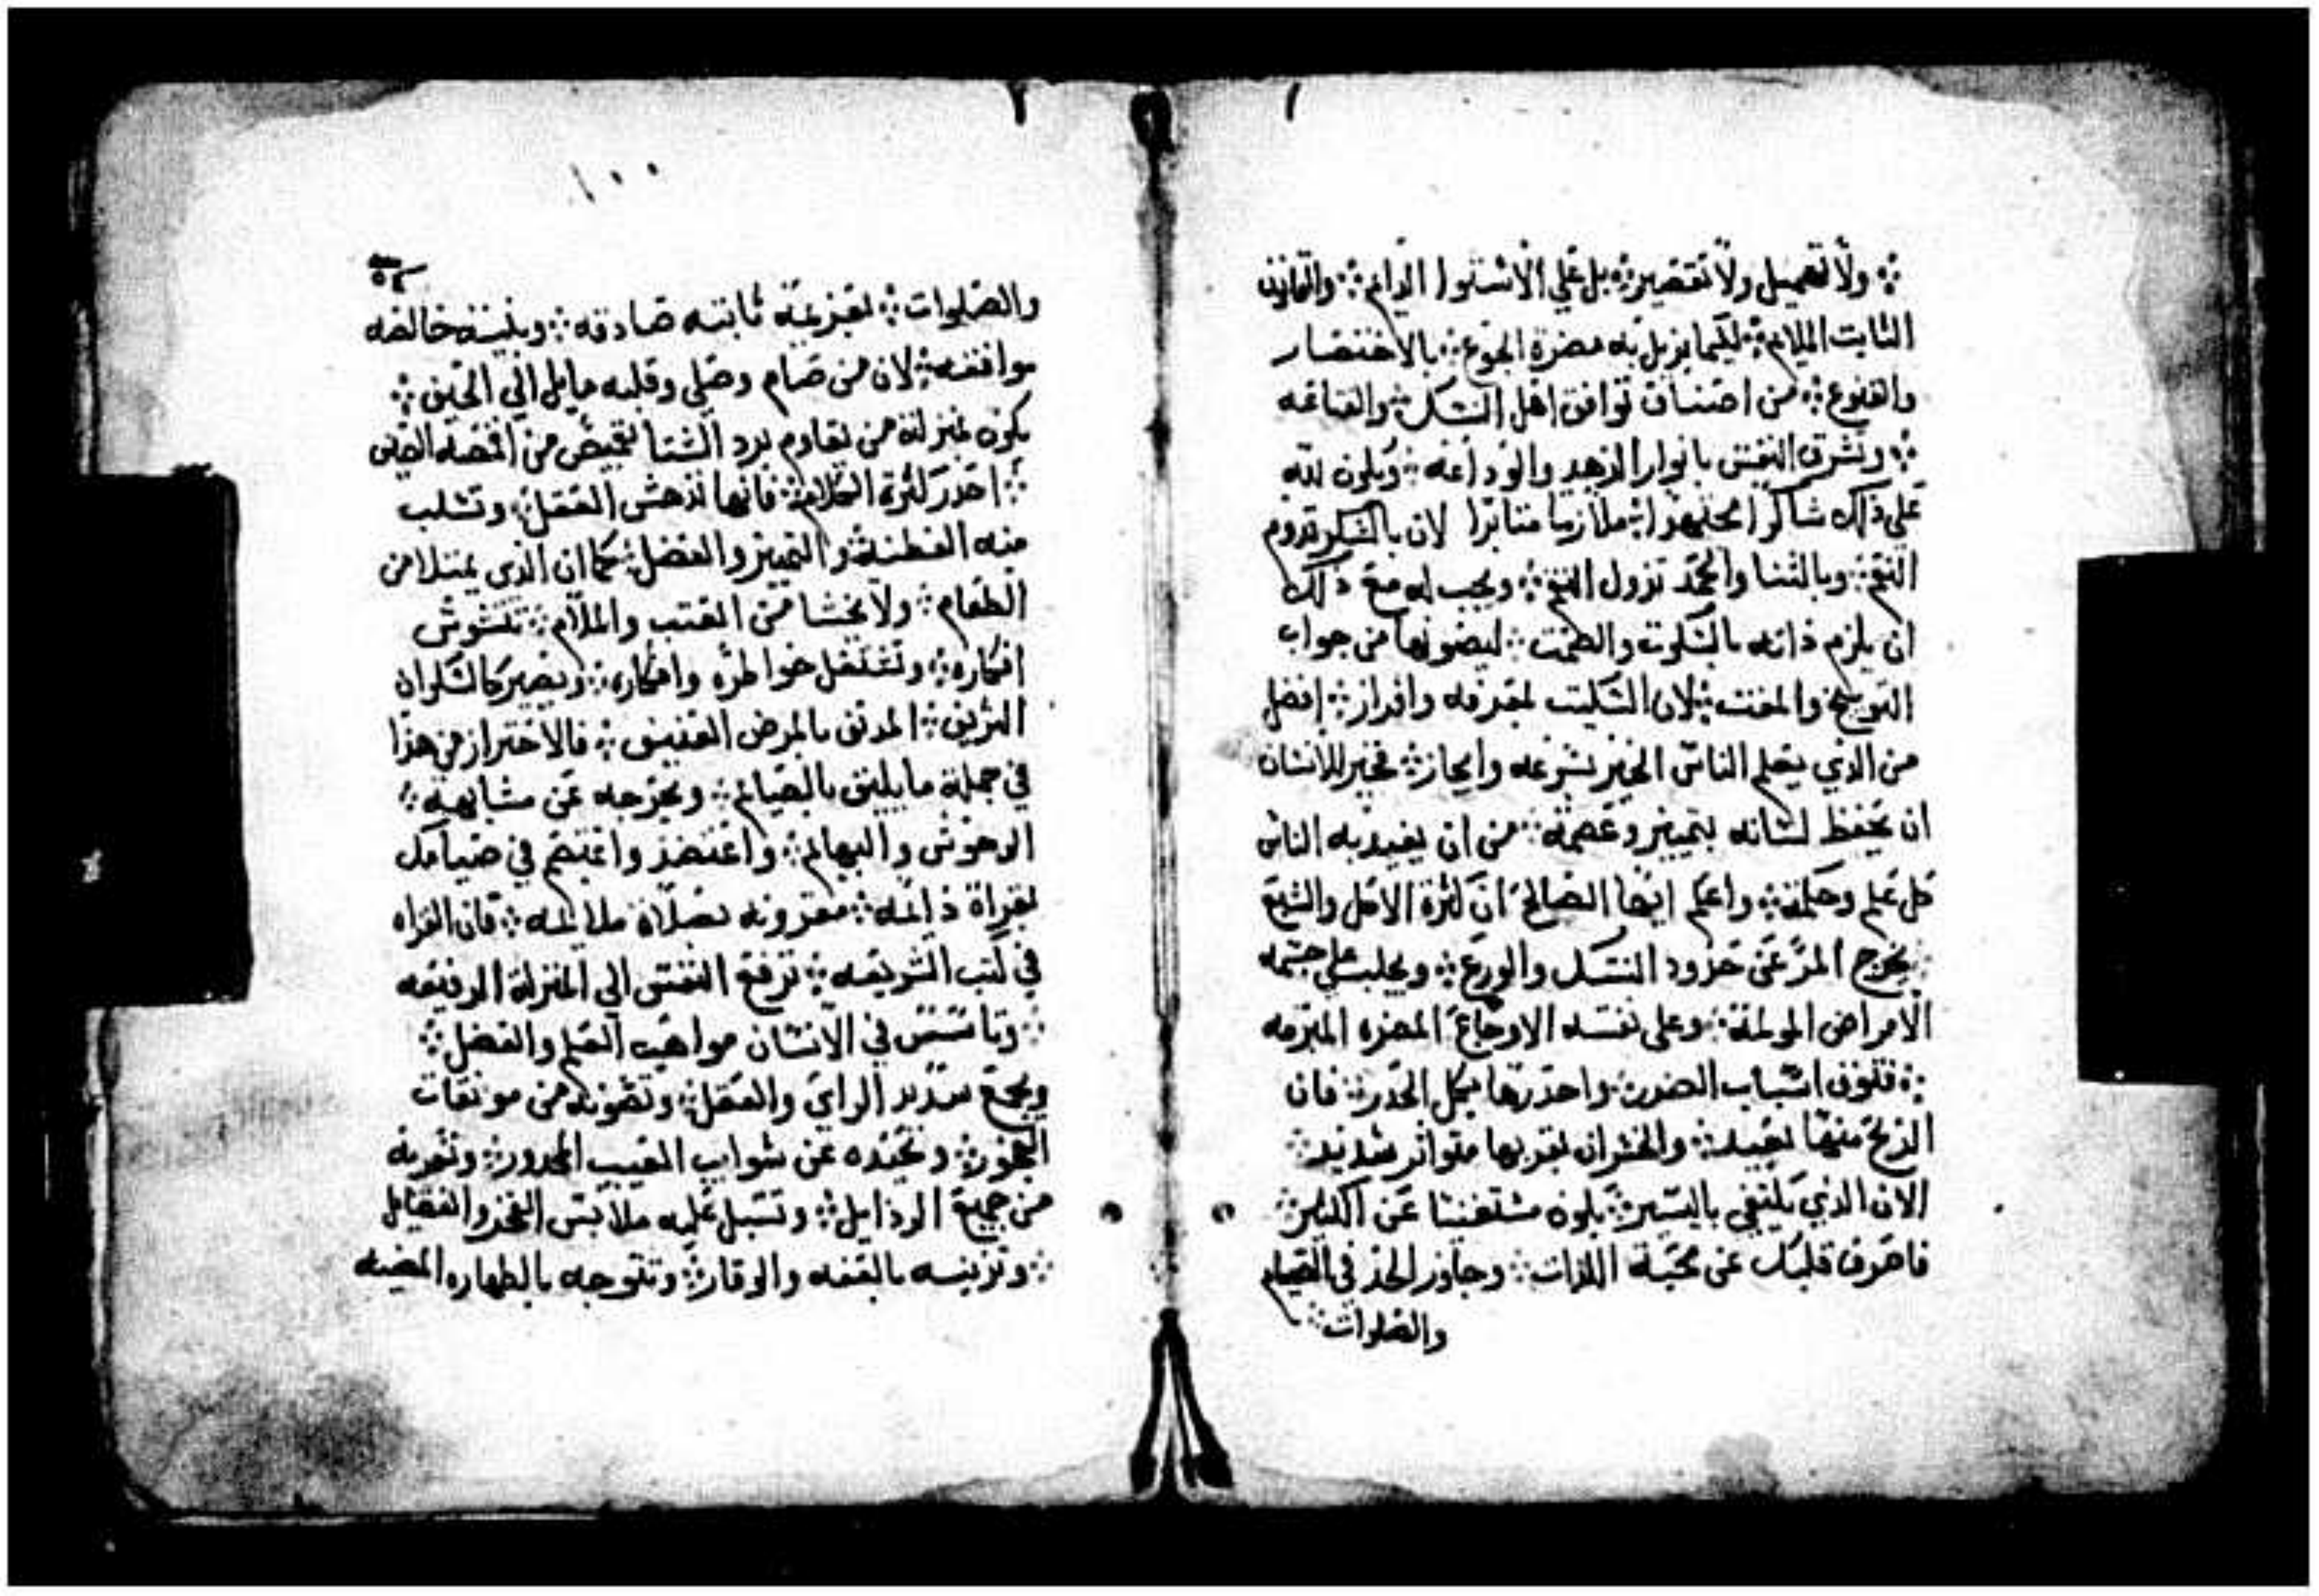 ولا تهميل ولا تقصير بل علي الاستوا الدايم والقانون
الثابت الملايم لكيما يزيل به مضرة الجوع بالاختصار
والقنوع من اصناف توافق اهل النسك والقناعه
وتشرق النفس بانوار الزهد والوداعه ويكون لله
علي ذلك شاكرا مجتهدا ملازما مثابرا لان بالشكر تدوم
النعم وبالثنا والحمد تزول النقم ويجب له مع ذلك
ان يلزم ذاته بالسكوت والصمت ليصونها من جواب
التوبيخ والمقت لان السكيت بمعرفه وافراز افضل
من الذي يعلم الناس الخير بسرعه وايجاز فخير للانسان
ان يحفظ لسانه بتمييز وعصمه من ان يفيد به الناس
كل علم وحكمة واعلم ايها الصالح ان كثرة الاكل والشبع
يخرج المر عن حدود النسك والورع ويجلب علي جسمه
الامراض المولمة وعلى نفسه الاوجاع المضره المبرمه
فتوق اسباب الضرر واحذرها بكل الحذر فان
الربح منها بعيد والخسران بقربها متواتر شديد
لان الذي يكتفي باليسير يكون مستغنيا عن الكثير
فاصرف قلبك عن محبة اللذات وجاوز الحد في الصيام
والصلوات
١٠٠
والصلوات بعزيمة ثابته صادقه وبنية خالصه
موافقه لان من صام وصلي وقلبه مايل الي الحين
يكون بمنزلة من يقاوم برد الشتا بقميص من اقمصة الصيف
احذر كثرة الكلام فانها تدهش العقل وتسلب
منه الفطنة والتمييز والفضل كما ان الذي يمتلا من
الطعام ولا يخشا من العتب والملام تتشوش
افكاره وتشتغل خواطره وافكاره ويصير كالسكران
النزيف المدنق بالمرض العنيف فالاحتراز من هذا
في جملة ما يليق بالصيام ويخرجه عن مشابهة
الوحوش والبهايم واعتضد واعتصم في صيامك
بقراة دايمه مقرونه بصلاة ملايمه فان القراه
في كتب الشريعه ترفع النفس الي المنزلة الرفيعه
وتاسس في الانسان مواهب العلم والفضل
ويجمع سديد الراي والعقل وتصونه من موبقات
الفجور وتحيده عن شوايب المعيب المحدور وتعريه
من جميع الرذايل وتسبل عليه ملابس الفخر والفضايل
وتزينه بالعفه والوقار وتتوجه بالطهاره المضيه